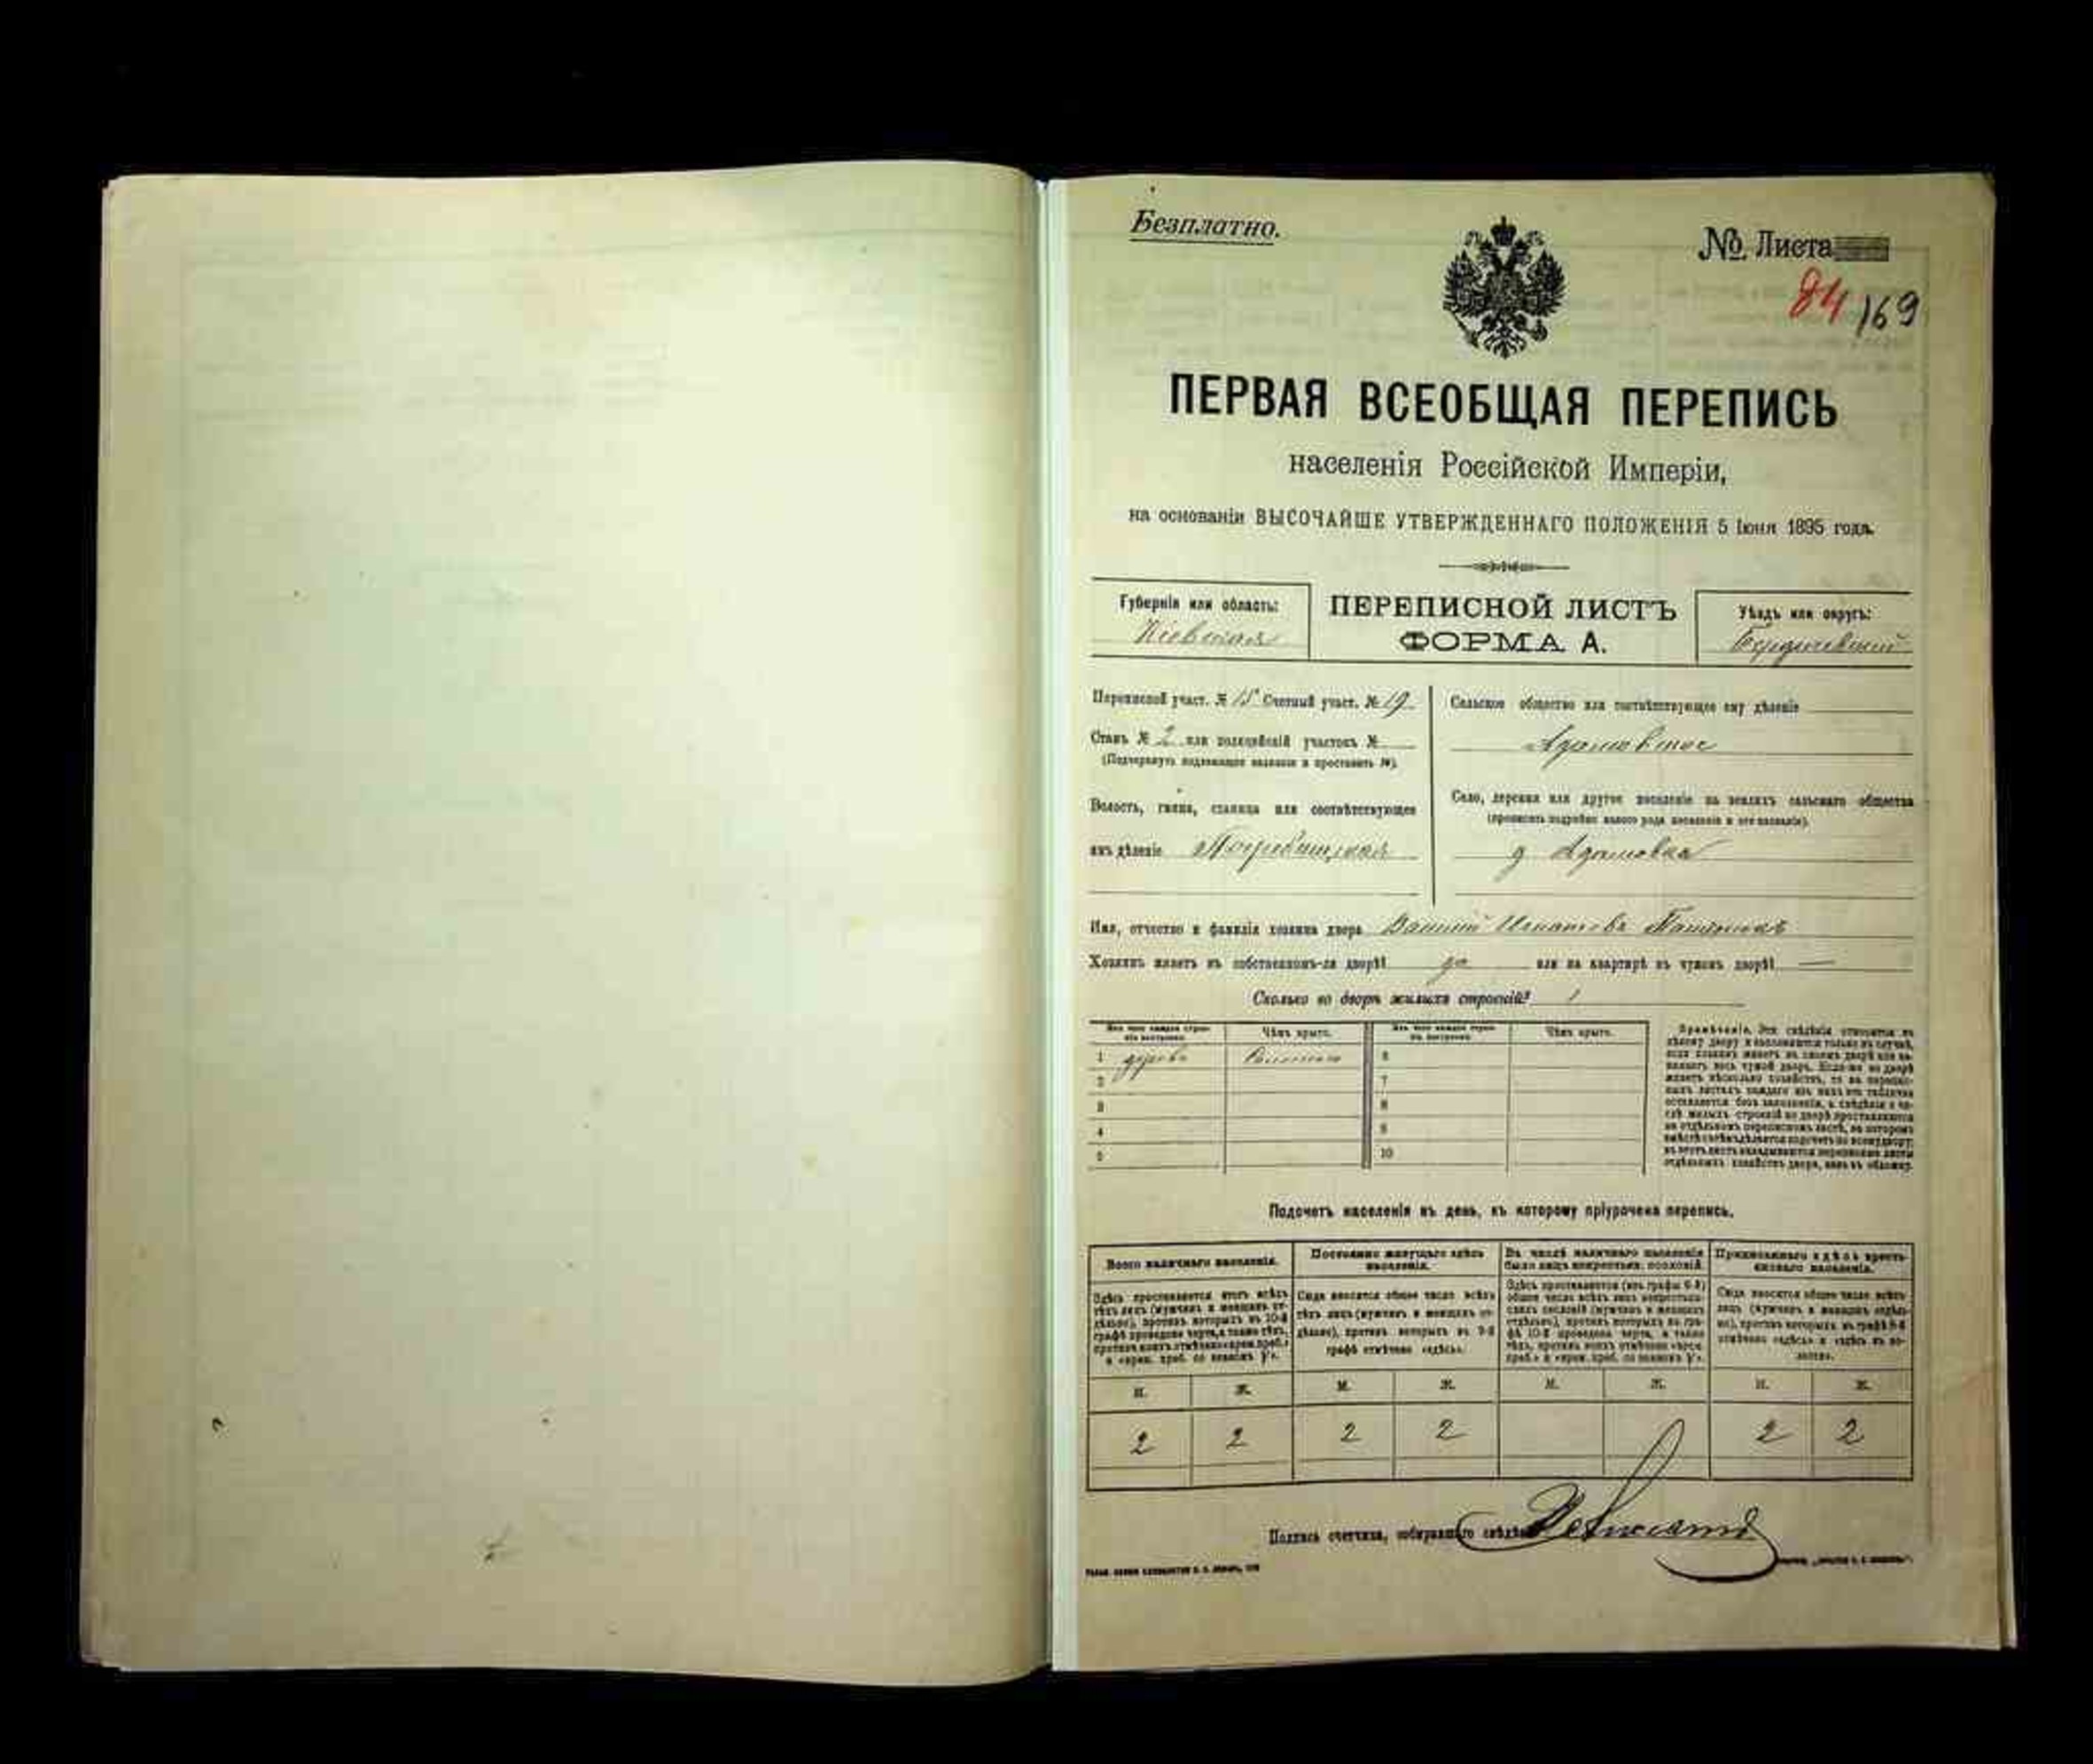 Безплатно.
№ Листа
84 169
ПЕРВАЯ ВСЕОБЩАЯ ПЕРЕПИСЬ
населенія Россійской Имперіи,
на основаніи ВЫСОЧАЙШЕ УТВЕРЖДЕННАГО ПОЛОЖЕНІЯ 5 Іюня 1895 года.
Губернія или область:
Кіевская
ПЕРЕПИСНОЙ ЛИСТЪ
ФОРМА А.
Уѣздъ или округъ:
Бердичевскій
Переписной участ. № 15 Счетный участ. № 19
Станъ № 2 или полицейскій участокъ №
(Подчеркнуть подлежащее названіе и проставить №).
Волость, гмина, станица или соотвѣтствующее
имъ дѣленіе Погребищская
Сельское общество или соотвѣтствующее ему дѣленіе
Адамовское
Село, деревня или другое поселеніе на земляхъ сельскаго общества
(прописать подробно какого рода поселеніе и его названіе).
д Адамовка
Имя, отчество и фамилія хозяина двора Игнатовъ
Хозяинъ живетъ въ собственномъ-ли дворѣ? да или на квартирѣ въ чужомъ дворѣ? —
Сколько во дворѣ жилыхъ строеній? 1
Изъ чего каждое строеніе построено. Чѣмъ крыто. Изъ чего каждое строеніе построено. Чѣмъ крыто.
1 дерева Соломою 6
2 7
3 8
4 9
5 10
Примѣчаніе. Эти свѣдѣнія относятся къ
цѣлому двору и заполняются только въ случаѣ,
если хозяинъ живетъ въ своемъ дворѣ или занимаетъ
весь чужой дворъ. Если-же во дворѣ
живетъ нѣсколько хозяйствъ, то на переписныхъ
листахъ каждаго изъ нихъ эта табличка
оставляется безъ заполненія, а свѣдѣнія о числѣ
жилыхъ строеній во дворѣ проставляются
на отдѣльномъ переписномъ листѣ, на которомъ
вмѣстѣ съ тѣмъ дѣлается подсчетъ по всему двору;
въ этотъ листъ вкладываются переписные листы
отдѣльныхъ хозяйствъ двора, какъ въ обложку.
Подсчетъ населенія въ день, къ которому пріурочена перепись.
Всего наличнаго населенія.
Здѣсь проставляется итогъ всѣхъ
тѣхъ лицъ (мужчинъ и женщинъ отдѣльно),
противъ которыхъ въ 10-й
графѣ проведена черта, а также тѣхъ,
противъ коихъ отмѣчено «врем. преб.»
Постоянно живущаго здѣсь населенія.
Сюда вносится общее число всѣхъ
тѣхъ лицъ (мужчинъ и женщинъ отдѣльно),
противъ которыхъ въ 9-й
графѣ отмѣчено «здѣсь».
Въ числѣ наличнаго населенія
было лицъ некрестьян. сословій.
Приписаннаго здѣсь крестьянскаго населенія.
Сюда вносится общее число всѣхъ
лицъ (мужчинъ и женщинъ отдѣльно),
противъ которыхъ въ графѣ 8-й
отмѣчено «здѣсь» и «здѣсь въ волости».
М. Ж. М. Ж. М. Ж. М. Ж.
2 2 2 2 2 2
Подпись счетчика, собиравшаго свѣдѣнія